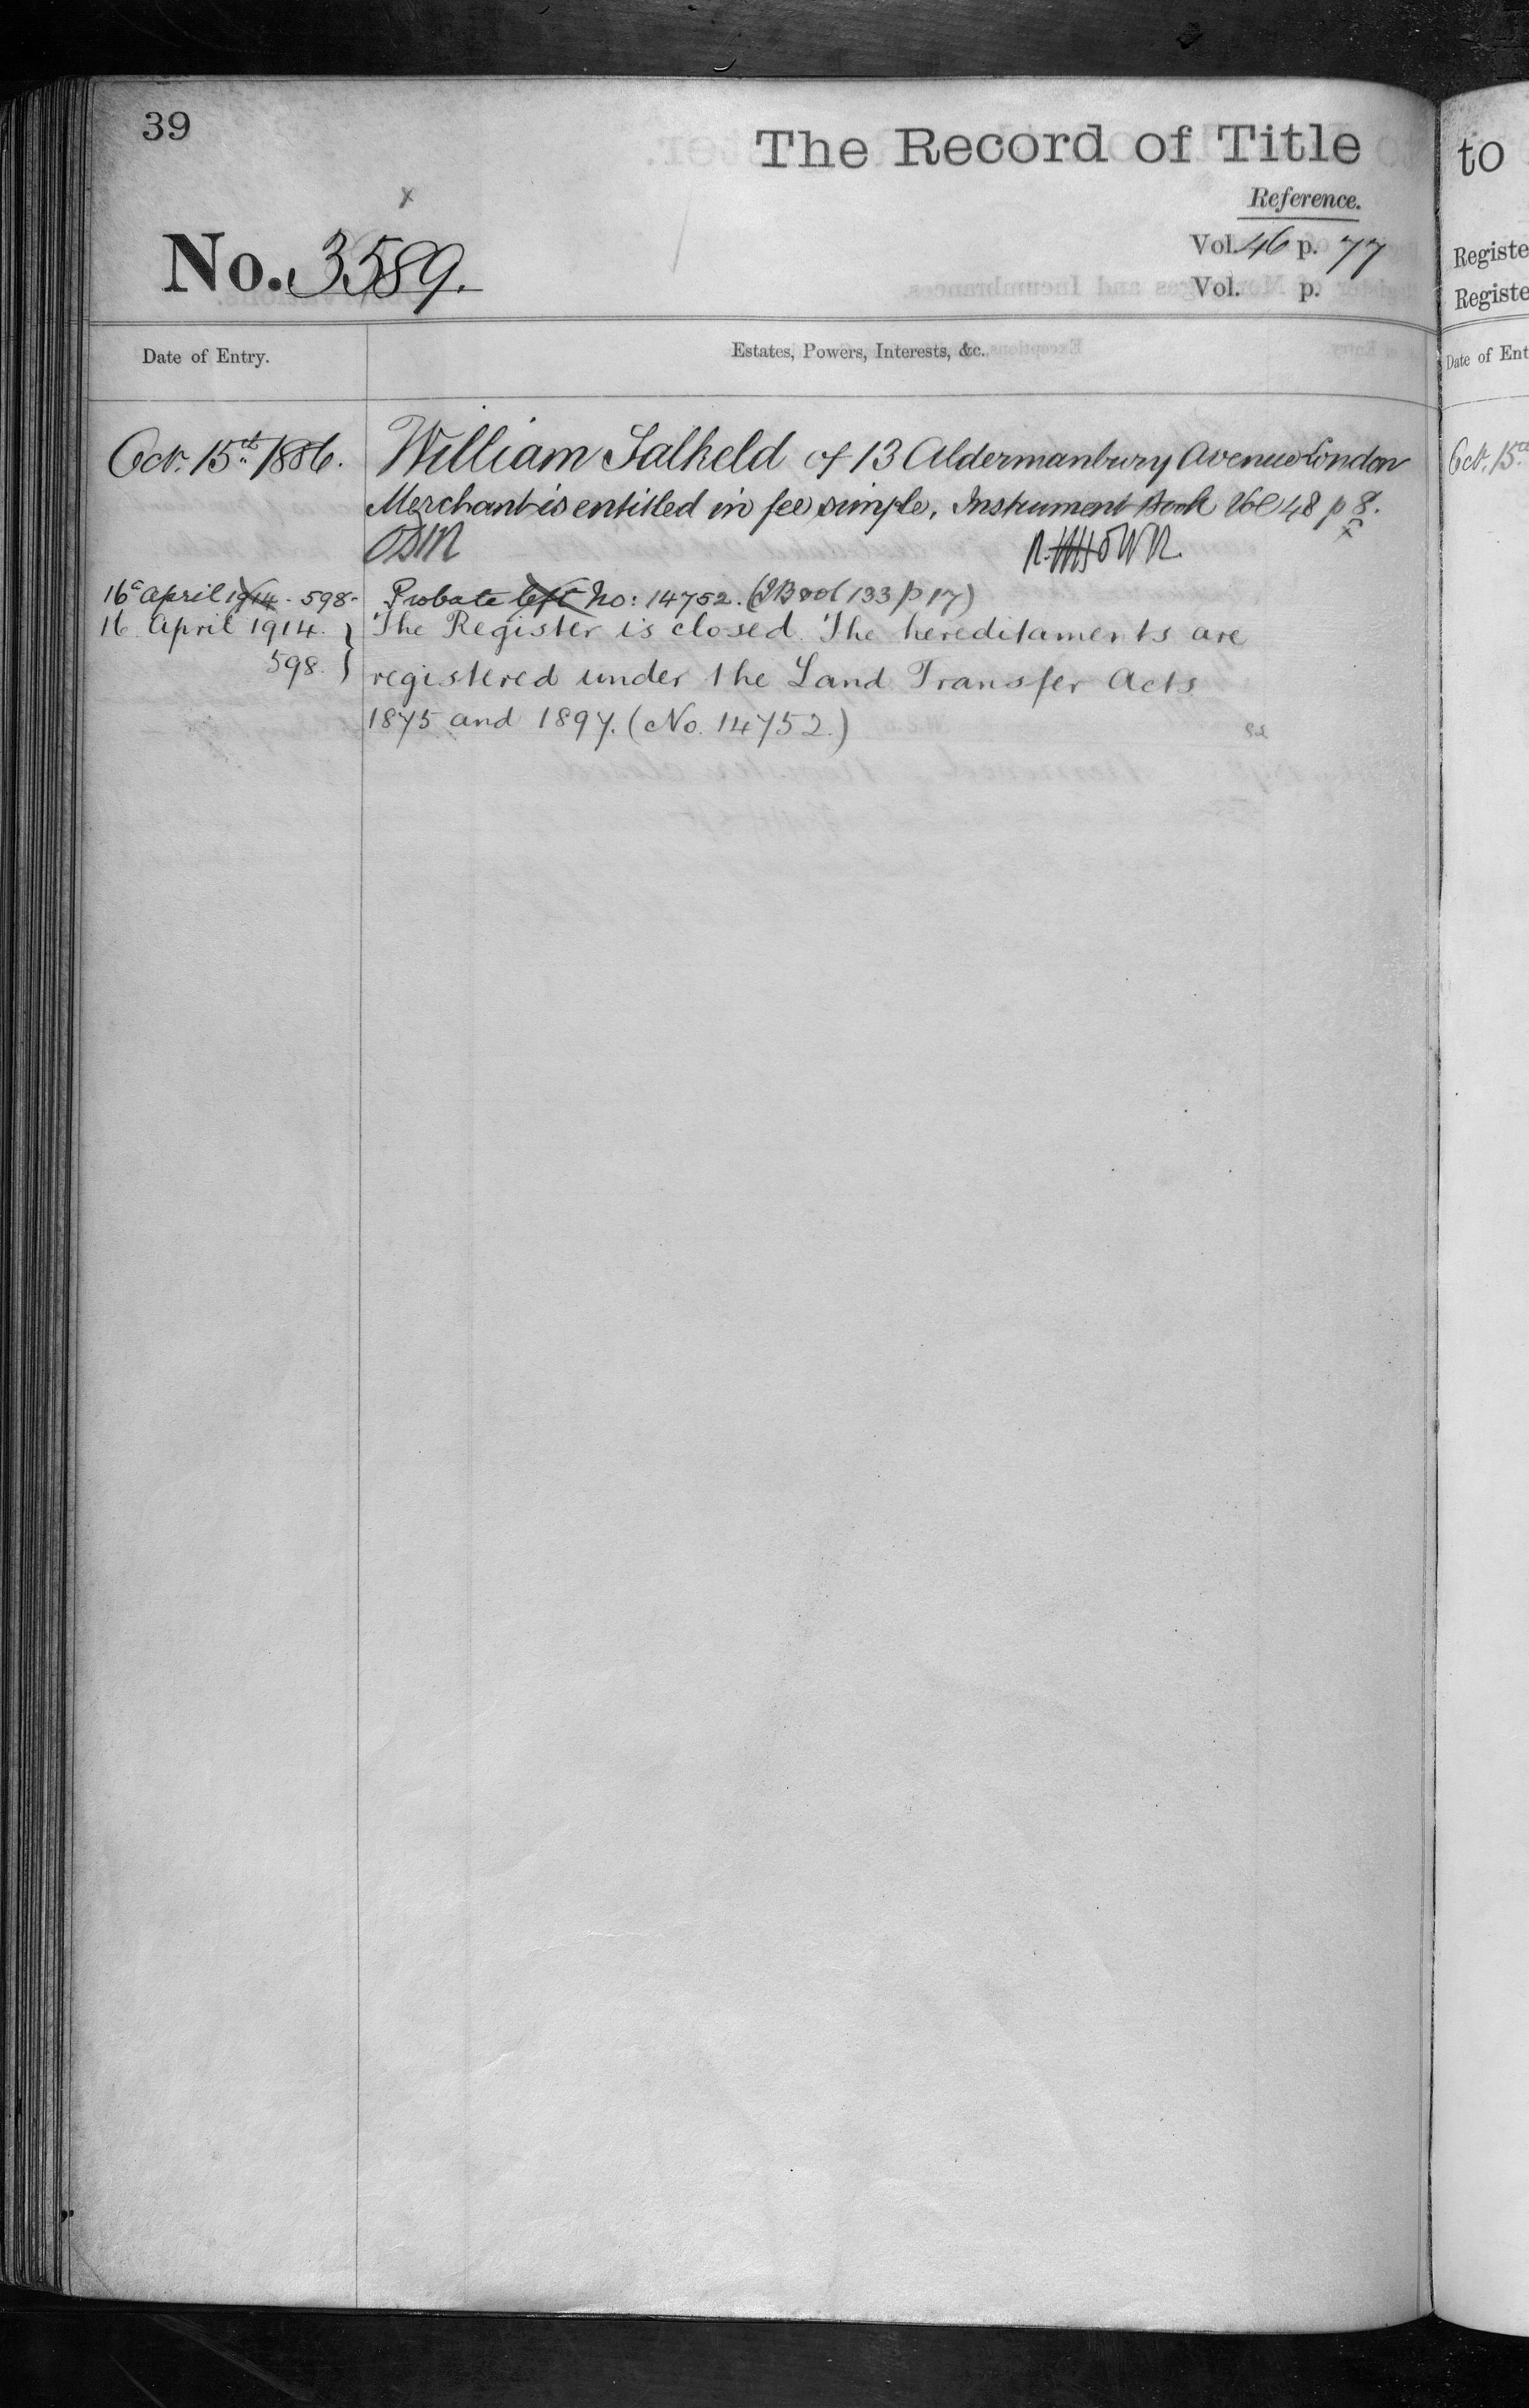 39
The Record of Title
Reference.
No. 3589.
Vol. 46 p. 77
Vol. p.
Date of Entry.
Estates, Powers, Interests, &c.
Oct. 15th 1886.
William Salkeld of 13 Aldermanbury Avenue London
Merchant is entitled in fee simple. Instrument Book Vol 48 p 8.
16 April 1914 - 598-
Probate left No: 14752. (IB vol 133 p 17)
16 April 1914.
598.
The Register is closed. The hereditaments are
registered under the Land Transfer Acts
1875 and 1897. (No. 14752.)
to
Registe
Registe
Date of Ent
Oct. 15